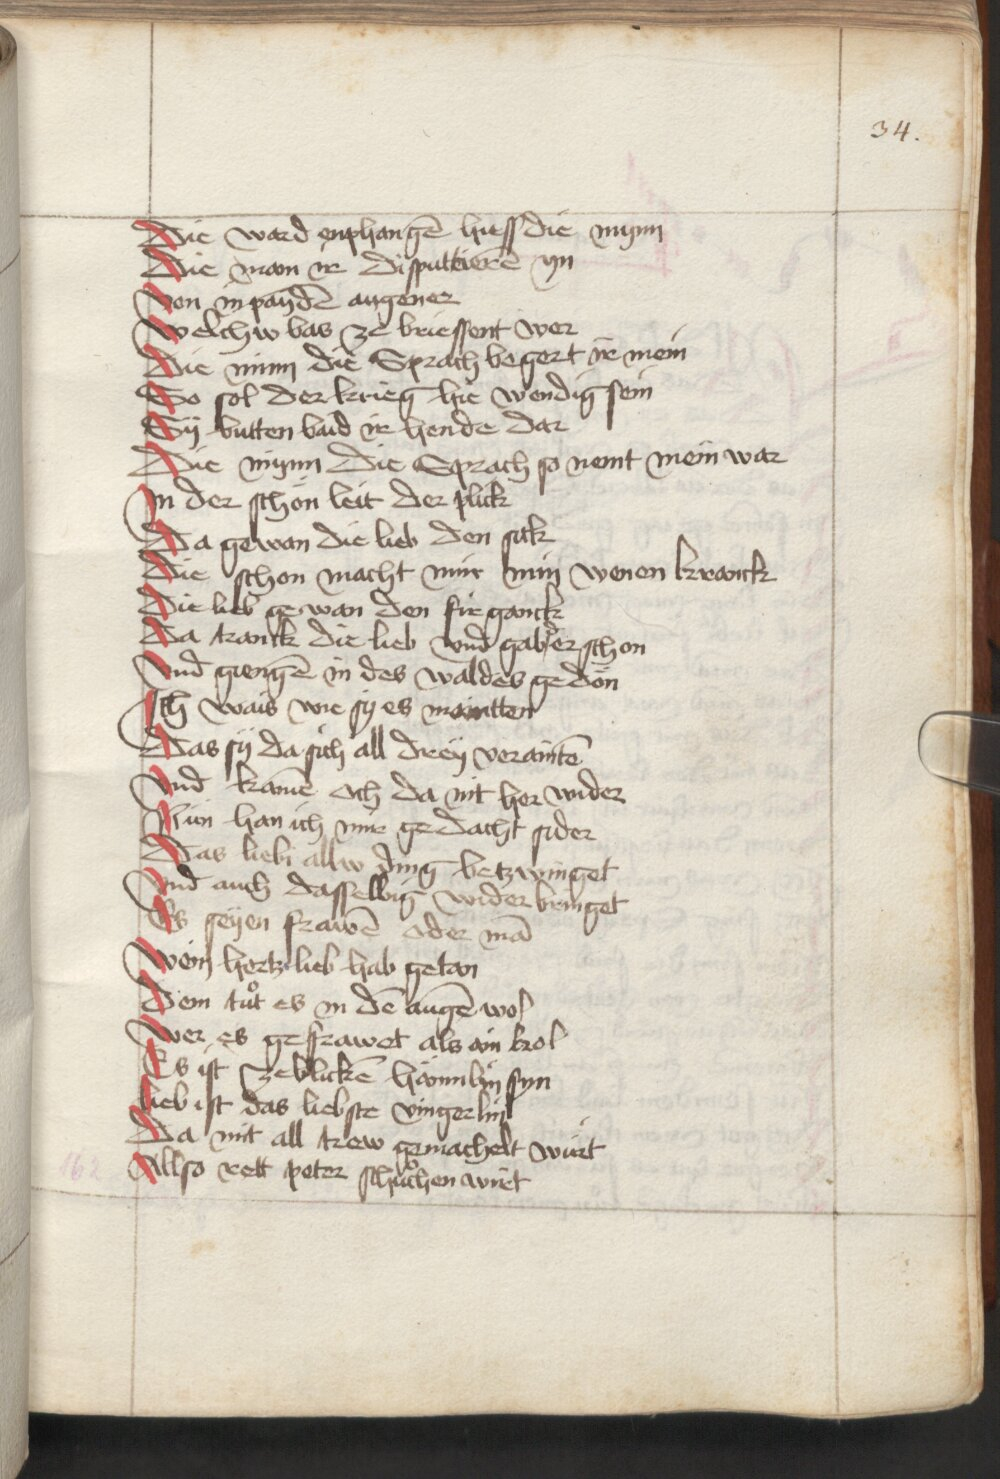 34.
Die ward enphangē hiess die mynn
Die man ir disputtierē yn
Von in paydē augener
Welchw bas ze briessent wer
Die minn die Sprach begert ir mein
So sol der krieg hie wendig sein
Sÿ butten baid ir hende dar
Die mynn die Sprach so nemt mein war
In der schön leit der plick
Da gewan die lieb den sick
Die schon macht mir min wenen kranck
Die lieb gewan den fir ganck
Da tranck die lieb vnd gab der schon
Vnd giengē in des waldes gedön
Ich wais wie sy es maintten
Das sÿ da sich all dreÿ veraintē
Vnd kamē och da nit her wider
Nün han ich mir gedacht sider
Das lieb allw ding betzwinget
Vnd auch dasselbig wider bringet
Es seyen frawē oder mā
Wem hertz lieb hab getan
Dem tuͦt es in dē augē wol
Wer es gefrawet als ain kol
Es ist ze blickē haimlin syn
Lieb ist das liebste vingerlin
Da mit all trew gemachelt wirt
Allso rett peter schuͦchen wirt
162